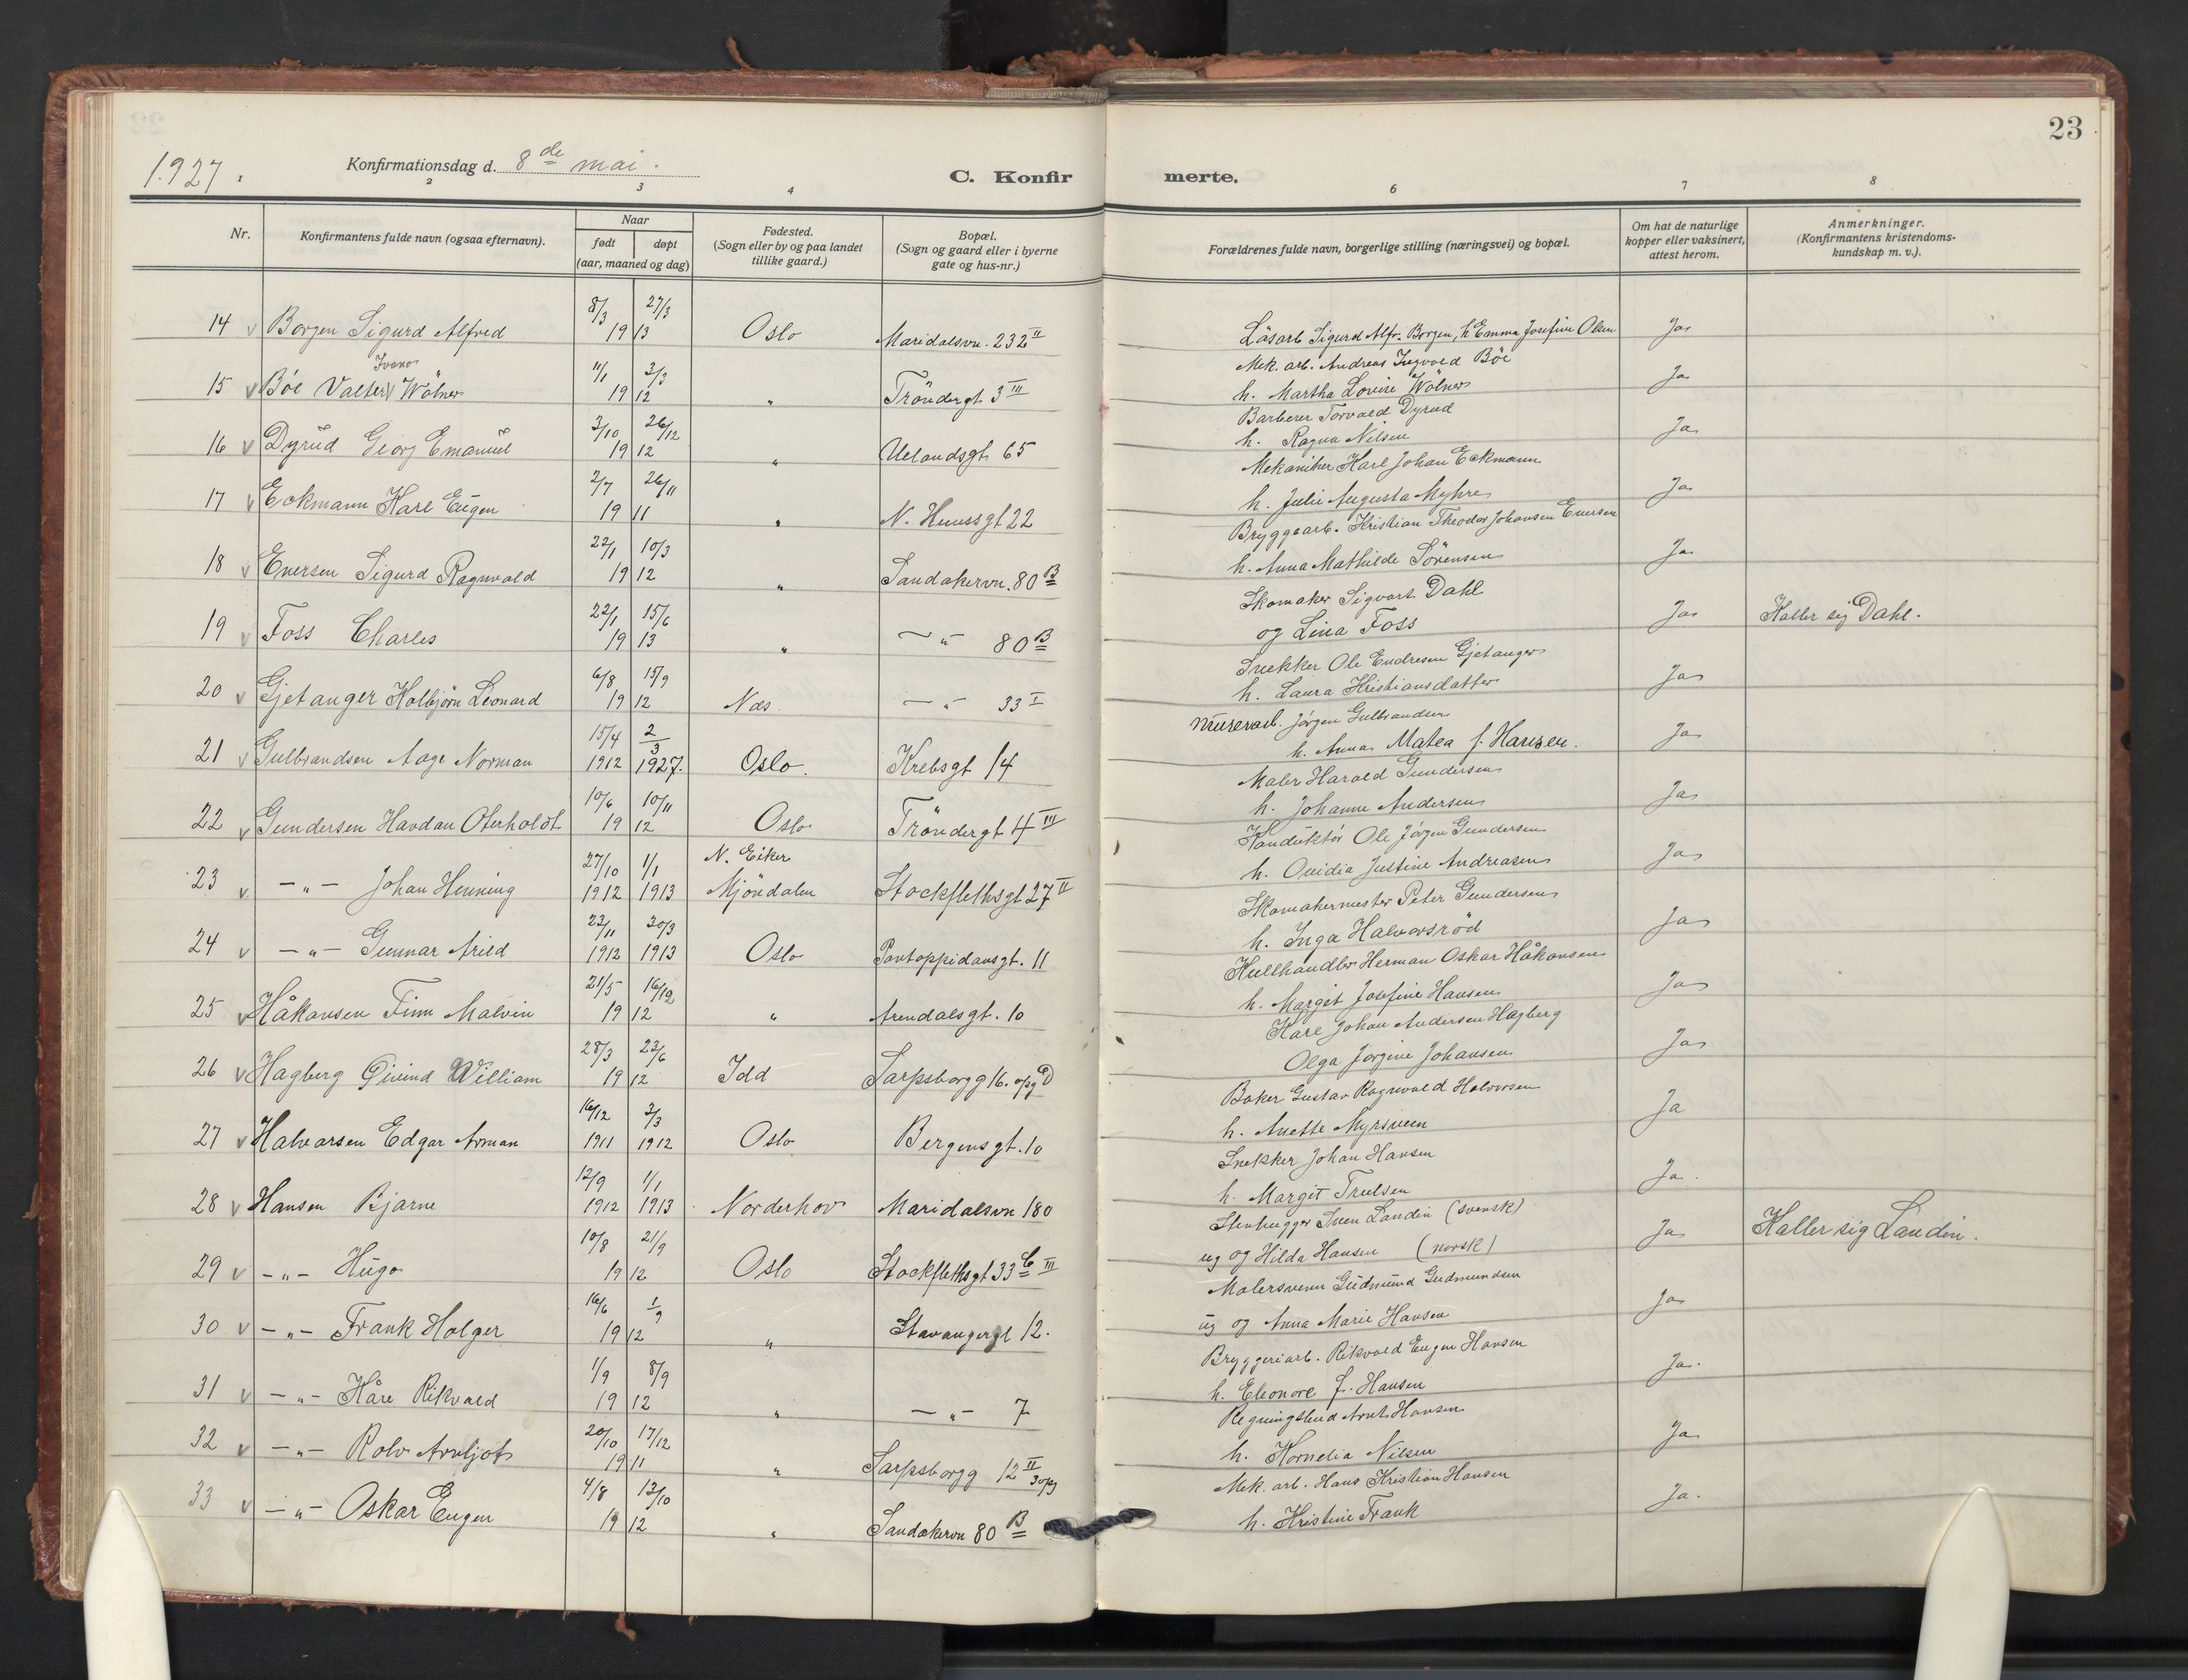 23
1927.
Konfirmationsdag d. 8de mai.
C. Konfirmerte.
1 2 3 4 6 7 8
Nr.
Konfirmantens fulde navn (ogsaa efternavn).
Naar
født
døpt
(aar, maaned og dag)
Fødested.
(Sogn eller by og paa landet
tillike gaard.)
Bopæl.
(Sogn og gaard eller i byerne
gate og hus-nr.)
Forældrenes fulde navn, borgerlige stilling (næringsvei) og bopæl.
Om hat de naturlige
kopper eller vaksinert,
attest herom.
Anmerkninger.
(Konfirmantens kristendoms-
kundskap m. v.).
14 v Borgen Sigurd Alfred 8/3 27/3 1913 Oslo Maridalsvn. 232 II Låsarb Sigurd Alfr. Borgen, h Emma Josefine Olsen Ja
15 v Böe Valter Ivano Wölner 11/1 3/3 1912 " Tröndergt 3 III Mek. arb. Andreas Ingvald Böe
h. Martha Lovise Wölner Ja
16 v Dyrud Georg Emanuel 3/10 26/12 1912 " Uelandsgt 65 Barberer Torvald Dyrud
h. Ragna Nilsen Ja
17 v Eckmann Karl Eugen 2/7 26/11 1911 " N. Huussgt 22 Mekaniker Karl Johan Eckmann
h. Julie Augusta Myhre Ja
18 v Enersen Sigurd Ragnvald 22/1 10/3 1912 " Sandakervn. 80 B Bryggearb. Kristian Theodor Johansen Enersen
h. Anna Mathilde Sörensen Ja
19 v Foss Charles 22/1 15/6 1913 " — " — 80 B Skomaker Sigvart Dahl
og Lina Foss Ja Kaller sig Dahl.
20 v Gjetanger Kolbjörn Leonard 6/8 15/9 1912 Nes — " — 33 I Snekker Ole Endresen Gjetanger
h. Laura Kristiansdatter Ja
21 v Gulbrandsen Aage Norman 15/4 1912 2/3 1927. Oslo. Krebsgt 14 Murerarb. Jörgen Gulbrandsen
h. Anna Matea f. Hansen. Ja
22 v Gundersen Havdan Oterholdt 10/6 10/11 1912 Oslo Tröndergt 4 III Maler Harald Gundersen
h. Johanne Andersen Ja
23 v — " — Johan Henning 27/10 1912 1/1 1913 N. Eiker
Mjöndalen Stockflethsgt 27 II Konduktör Ole Jörgen Gundersen
h. Ovidia Justine Andreasen Ja
24 v — " — Gunnar Arild 23/11 1912 30/3 1913 Oslo Pontoppidansgt. 11 Skomakermester Peter Gundersen
h. Inga Halvorsröd Ja
25 v Håkonsen Finn Malvin 21/5 16/12 1912 " Arendalsgt. 10 Kullhandler Herman Oskar Håkonsen
h. Margit Josefine Hansen Ja
26 v Hagberg Öivind William 28/3 23/6 1912 Idd Sarpsborgg 16. opg D Karl Johan Andersen Hagberg
Olga Jörgine Johansen Ja
27 v Halvorsen Edgar Arman 16/12 1911 3/3 1912 Oslo Bergensgt. 10 Baker Gustav Ragnvald Halvorsen
h. Anette Myrsveen Ja
28 v Hansen Bjarne 12/9 1912 1/1 1913 Norderhov Maridalsvn 180 Snekker Johan Hansen
h. Margit Trulsen Ja.
29 v — " — Hugo 10/8 21/9 1912 Oslo Stockflethsgt 33 C III Stenhugger Sven Landin (svensk)
ug og Hilda Hansen (norsk) Ja Kaller sig Landin.
30 v — " — Frank Holger 16/6 1/9 1912 " Stavangergt 12. Malersvenn Gudmund Gudmundsen
ug og Anna Marie Hansen Ja
31 v — " — Kåre Rikvald 1/9 8/9 1912 " — " — 7 Bryggeriarb. Rikvald Eugen Hansen
h. Eleonore f. Hansen Ja.
32 v — " — Rolv Arnljot 20/10 17/12 1911 " Sarpsborgg 12 II 3 opg Regningsbud Arnt Hansen
h. Kornelia Nilsen Ja
33 v — " — Oskar Eugen 4/8 13/10 1912 " Sandakervn 80 B Mek. arb. Hans Kristian Hansen
h. Kristine Frank Ja.